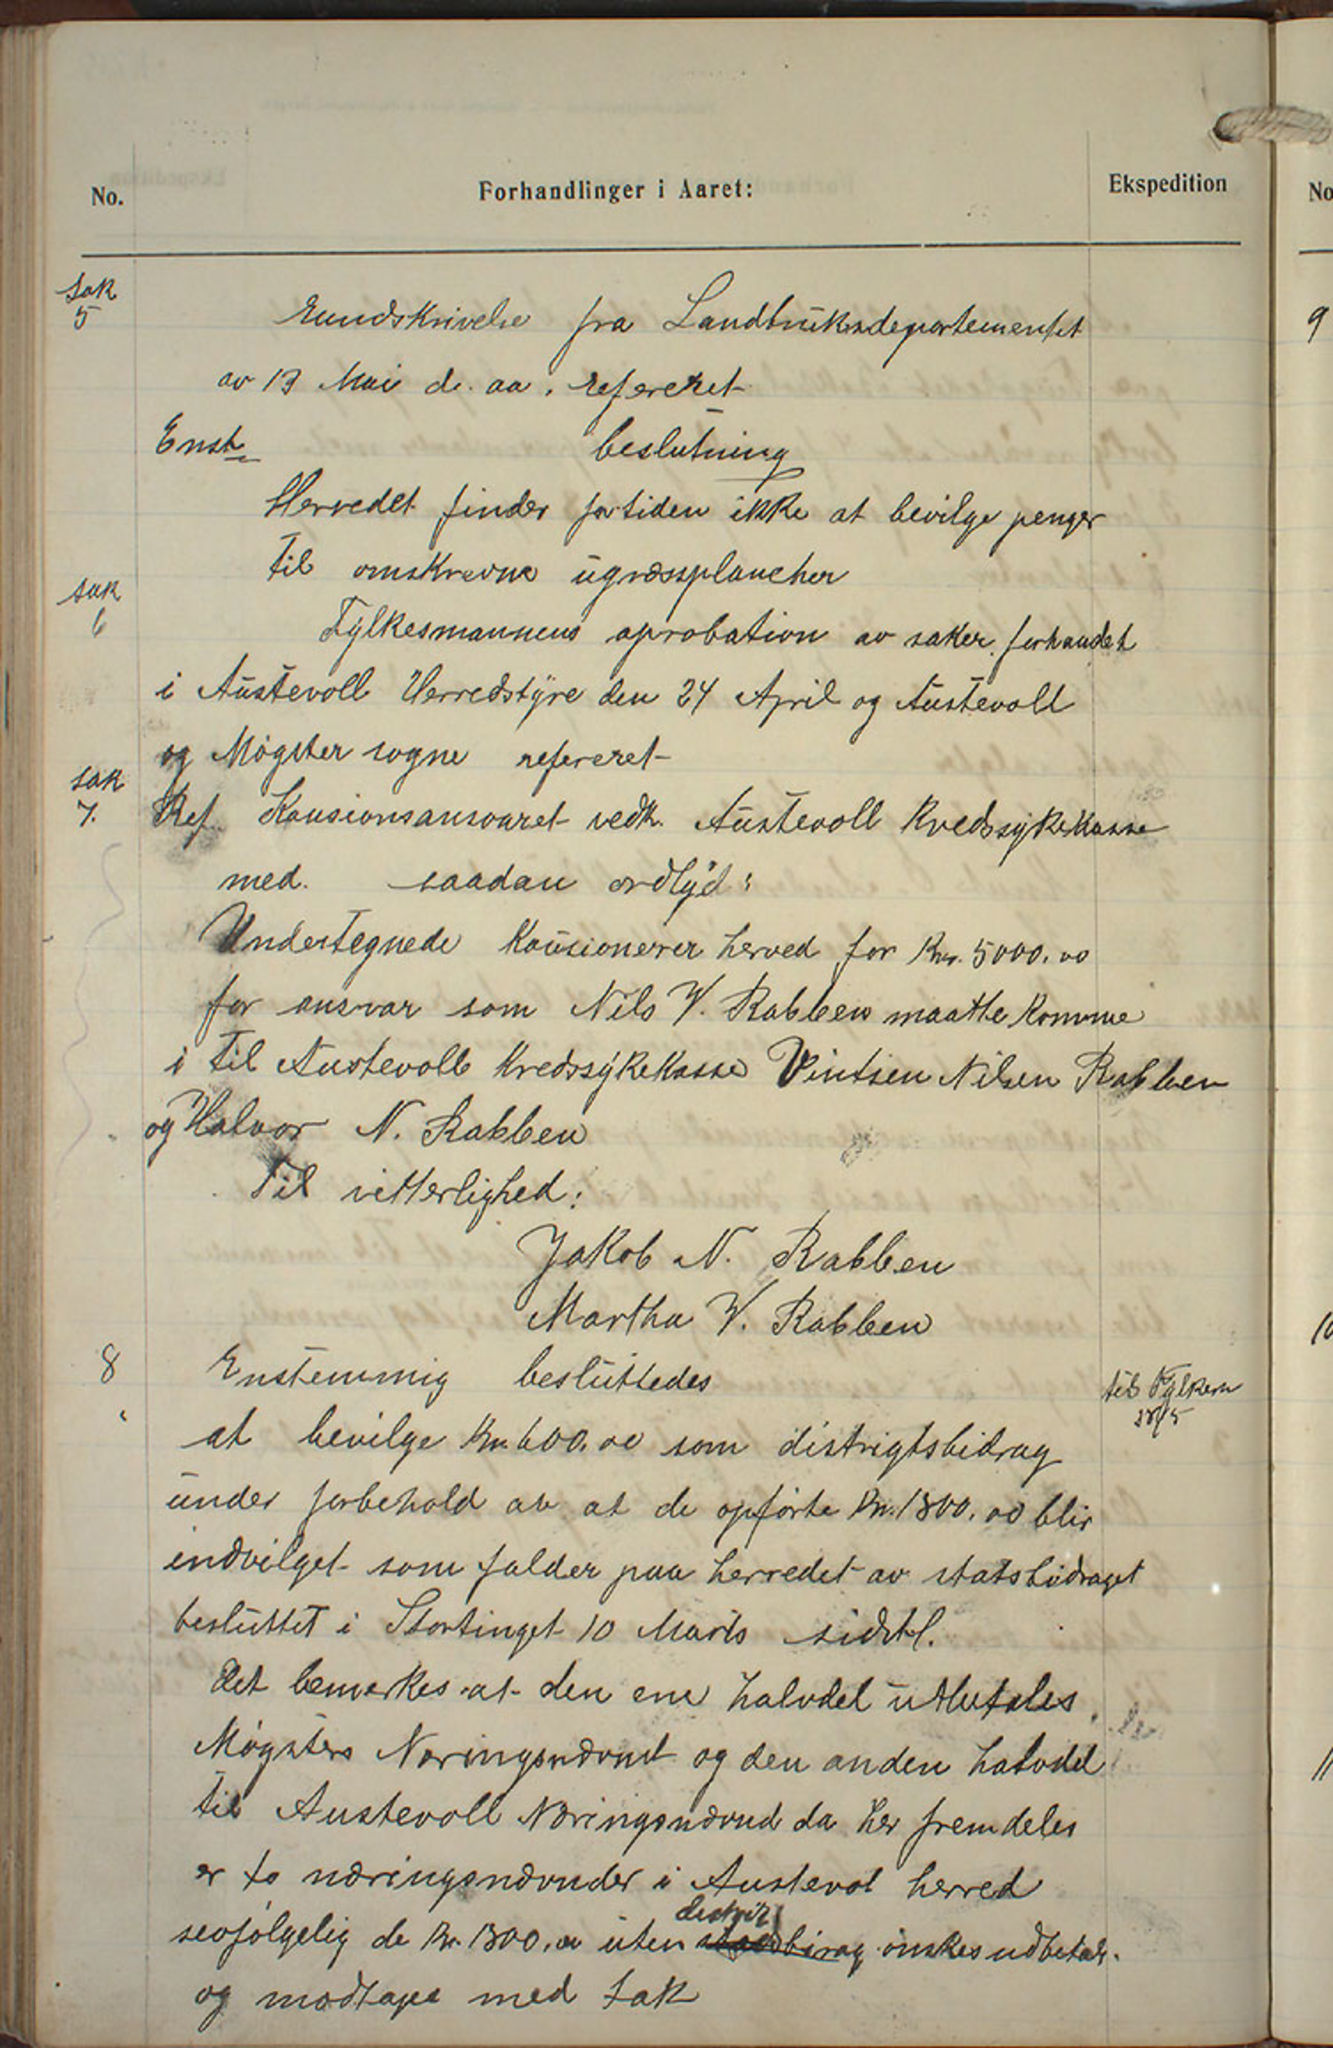 No.
Forhandlinger i Aaret:
Ekspedition
No
Sak
5
Rundskrivelse fra Landbruksdepartementet
av 13 Mai d. aa. referert
Enst.
beslutning
Herredet finder fortiden ikke at bevilge penger
til omskrevne ugræssplancher
sak
6
Fylkesmannens aprobation av saker forhandlet
i Austevoll Herredstyre den 24 April og Austevoll
og Møgster sogne refereret
sak
7.
Ref Kausionsansvaret vedk. Austevoll Kredssykekasse
med. saadan ordlyd:
Undertegnede kausionerer herved for Kr. 5000.00
for ansvar som Nils V. Rabben maatte komme
i til Austevoll Kredssykekasse Vintsen Nilsen Rabben
og Halvor N. Rabben
Til vitterlighed:
Jakob N. Rabben
Martha V. Rabben
8
Enstemmig besluttedes
til Fylkesm
at bevilge Kr. 600.00 som distrigtsbidrag
under forbehold av at de opførte Kr. 1800.00 blir
indvilget som falder paa herredet av statsbidraget
besluttet i Stortinget 10 Marts sidstl.
Det bemerkes at den ene halvdel utbetales
Møgsters Næringsnævnd og den anden halvdel
til Austevoll Næringsnævnd da her fremdeles
er to næringsnævnder i Austevol herred
distrik
selvfølgelig de Kr. 1800.00 uten birag ønskes udbetalt.
og modtages med tak
9
10
11